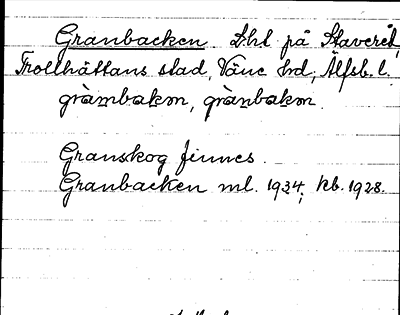 Granbacken Lht på Stavered,
Trollhättans stad, Väne hd, Älfsb. l.
gràmbakən, grànbakən.
Granskog finnes.
Granbacken ml. 1934; kb. 1928.